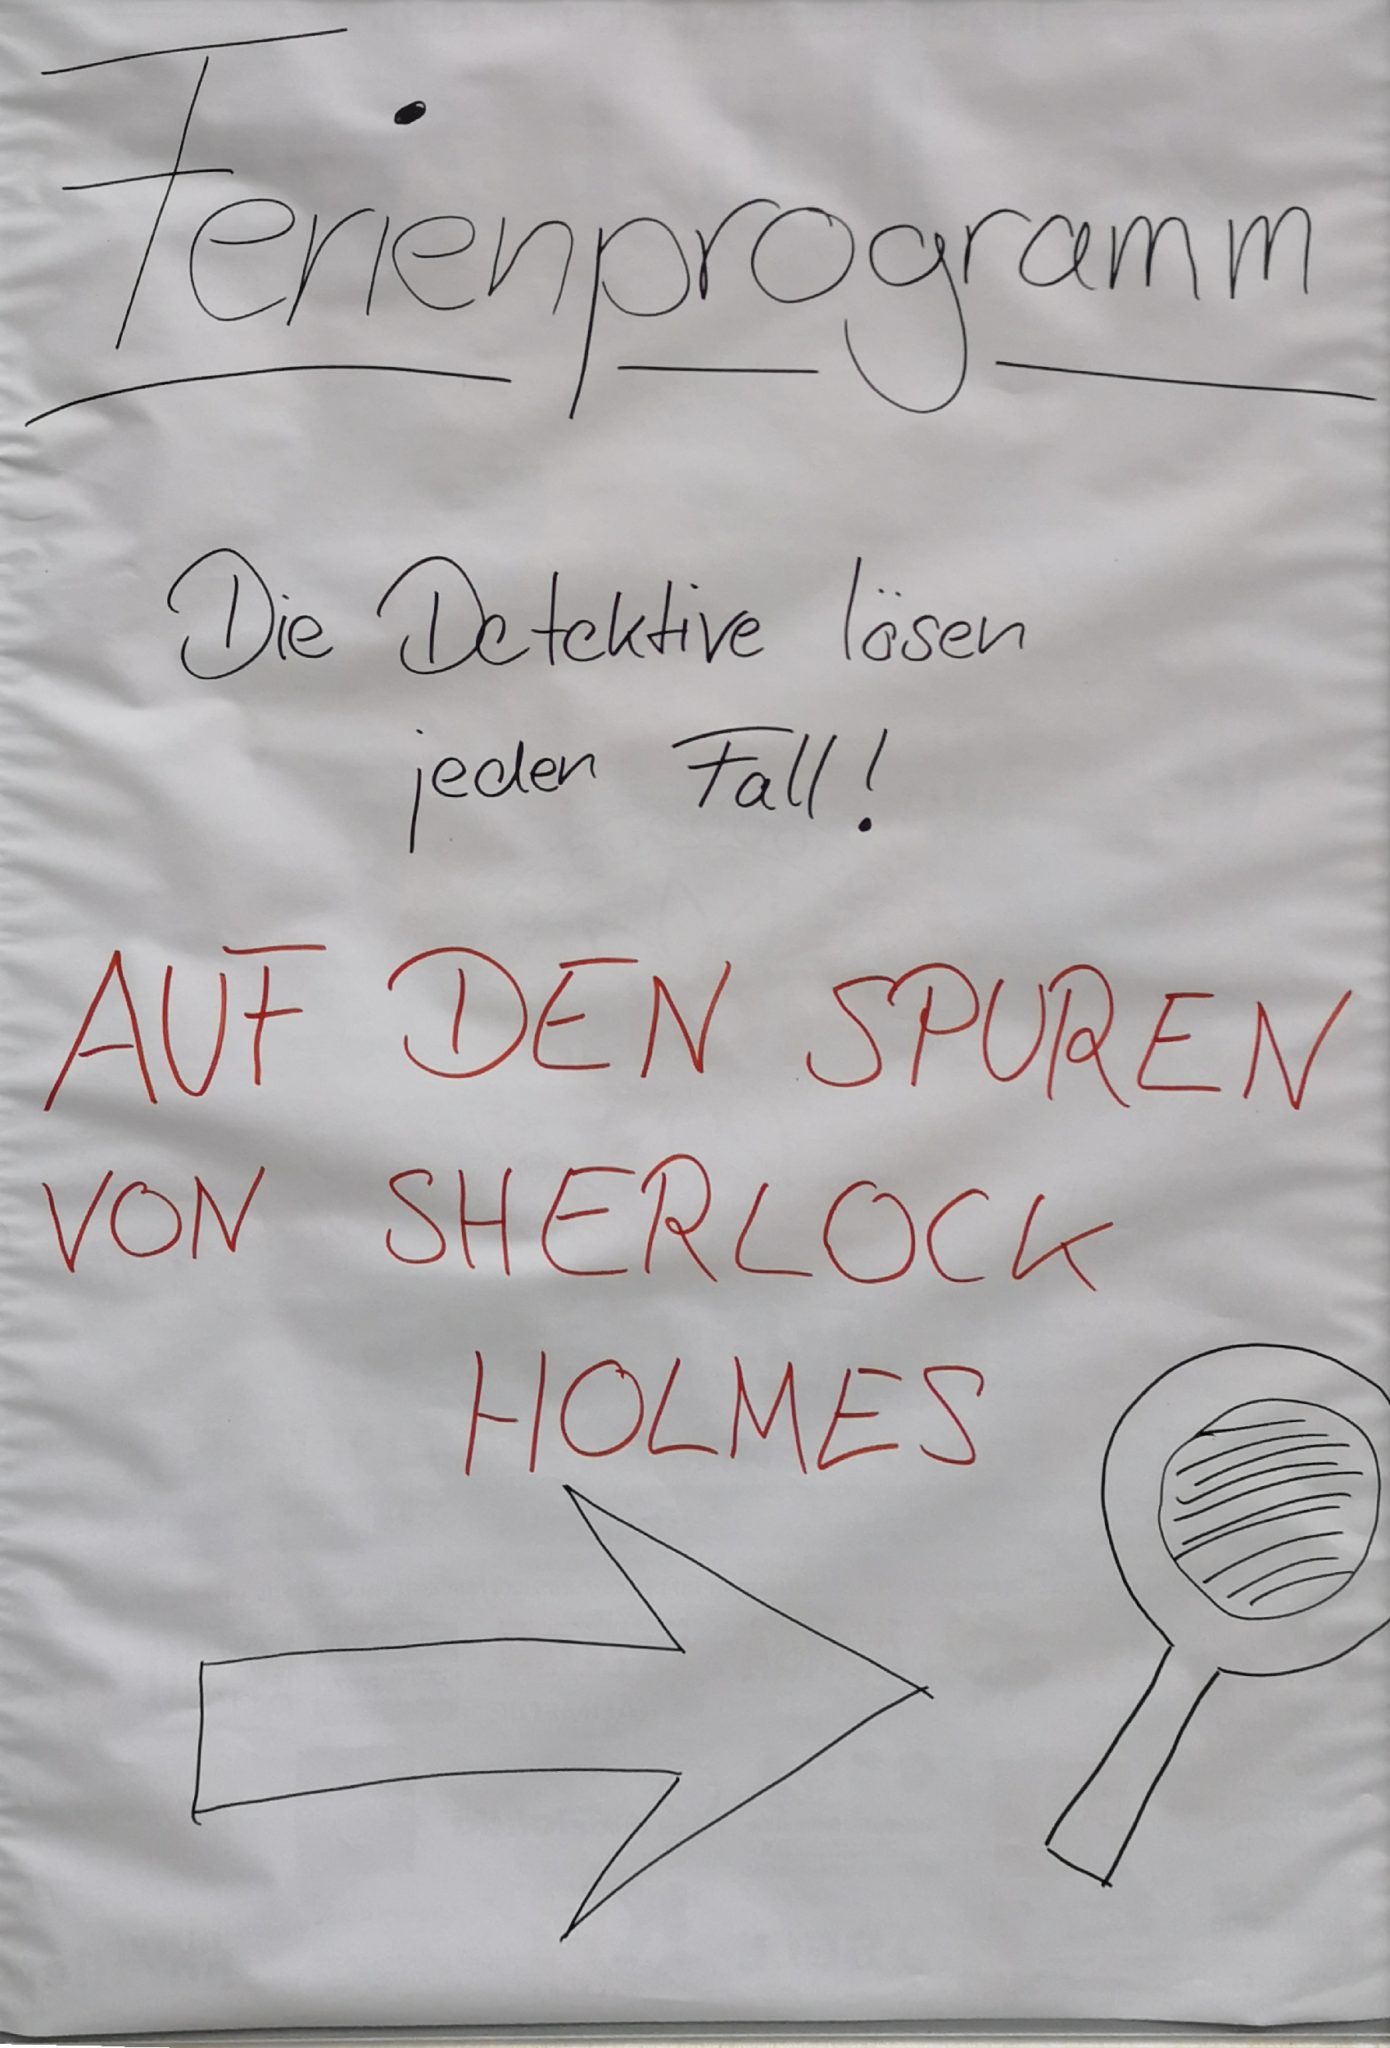 Ferienprogramm
Die Detektive lösen
jeden Fall!
AUF DEN SPUREN
VON SHERLOCK
HOLMES